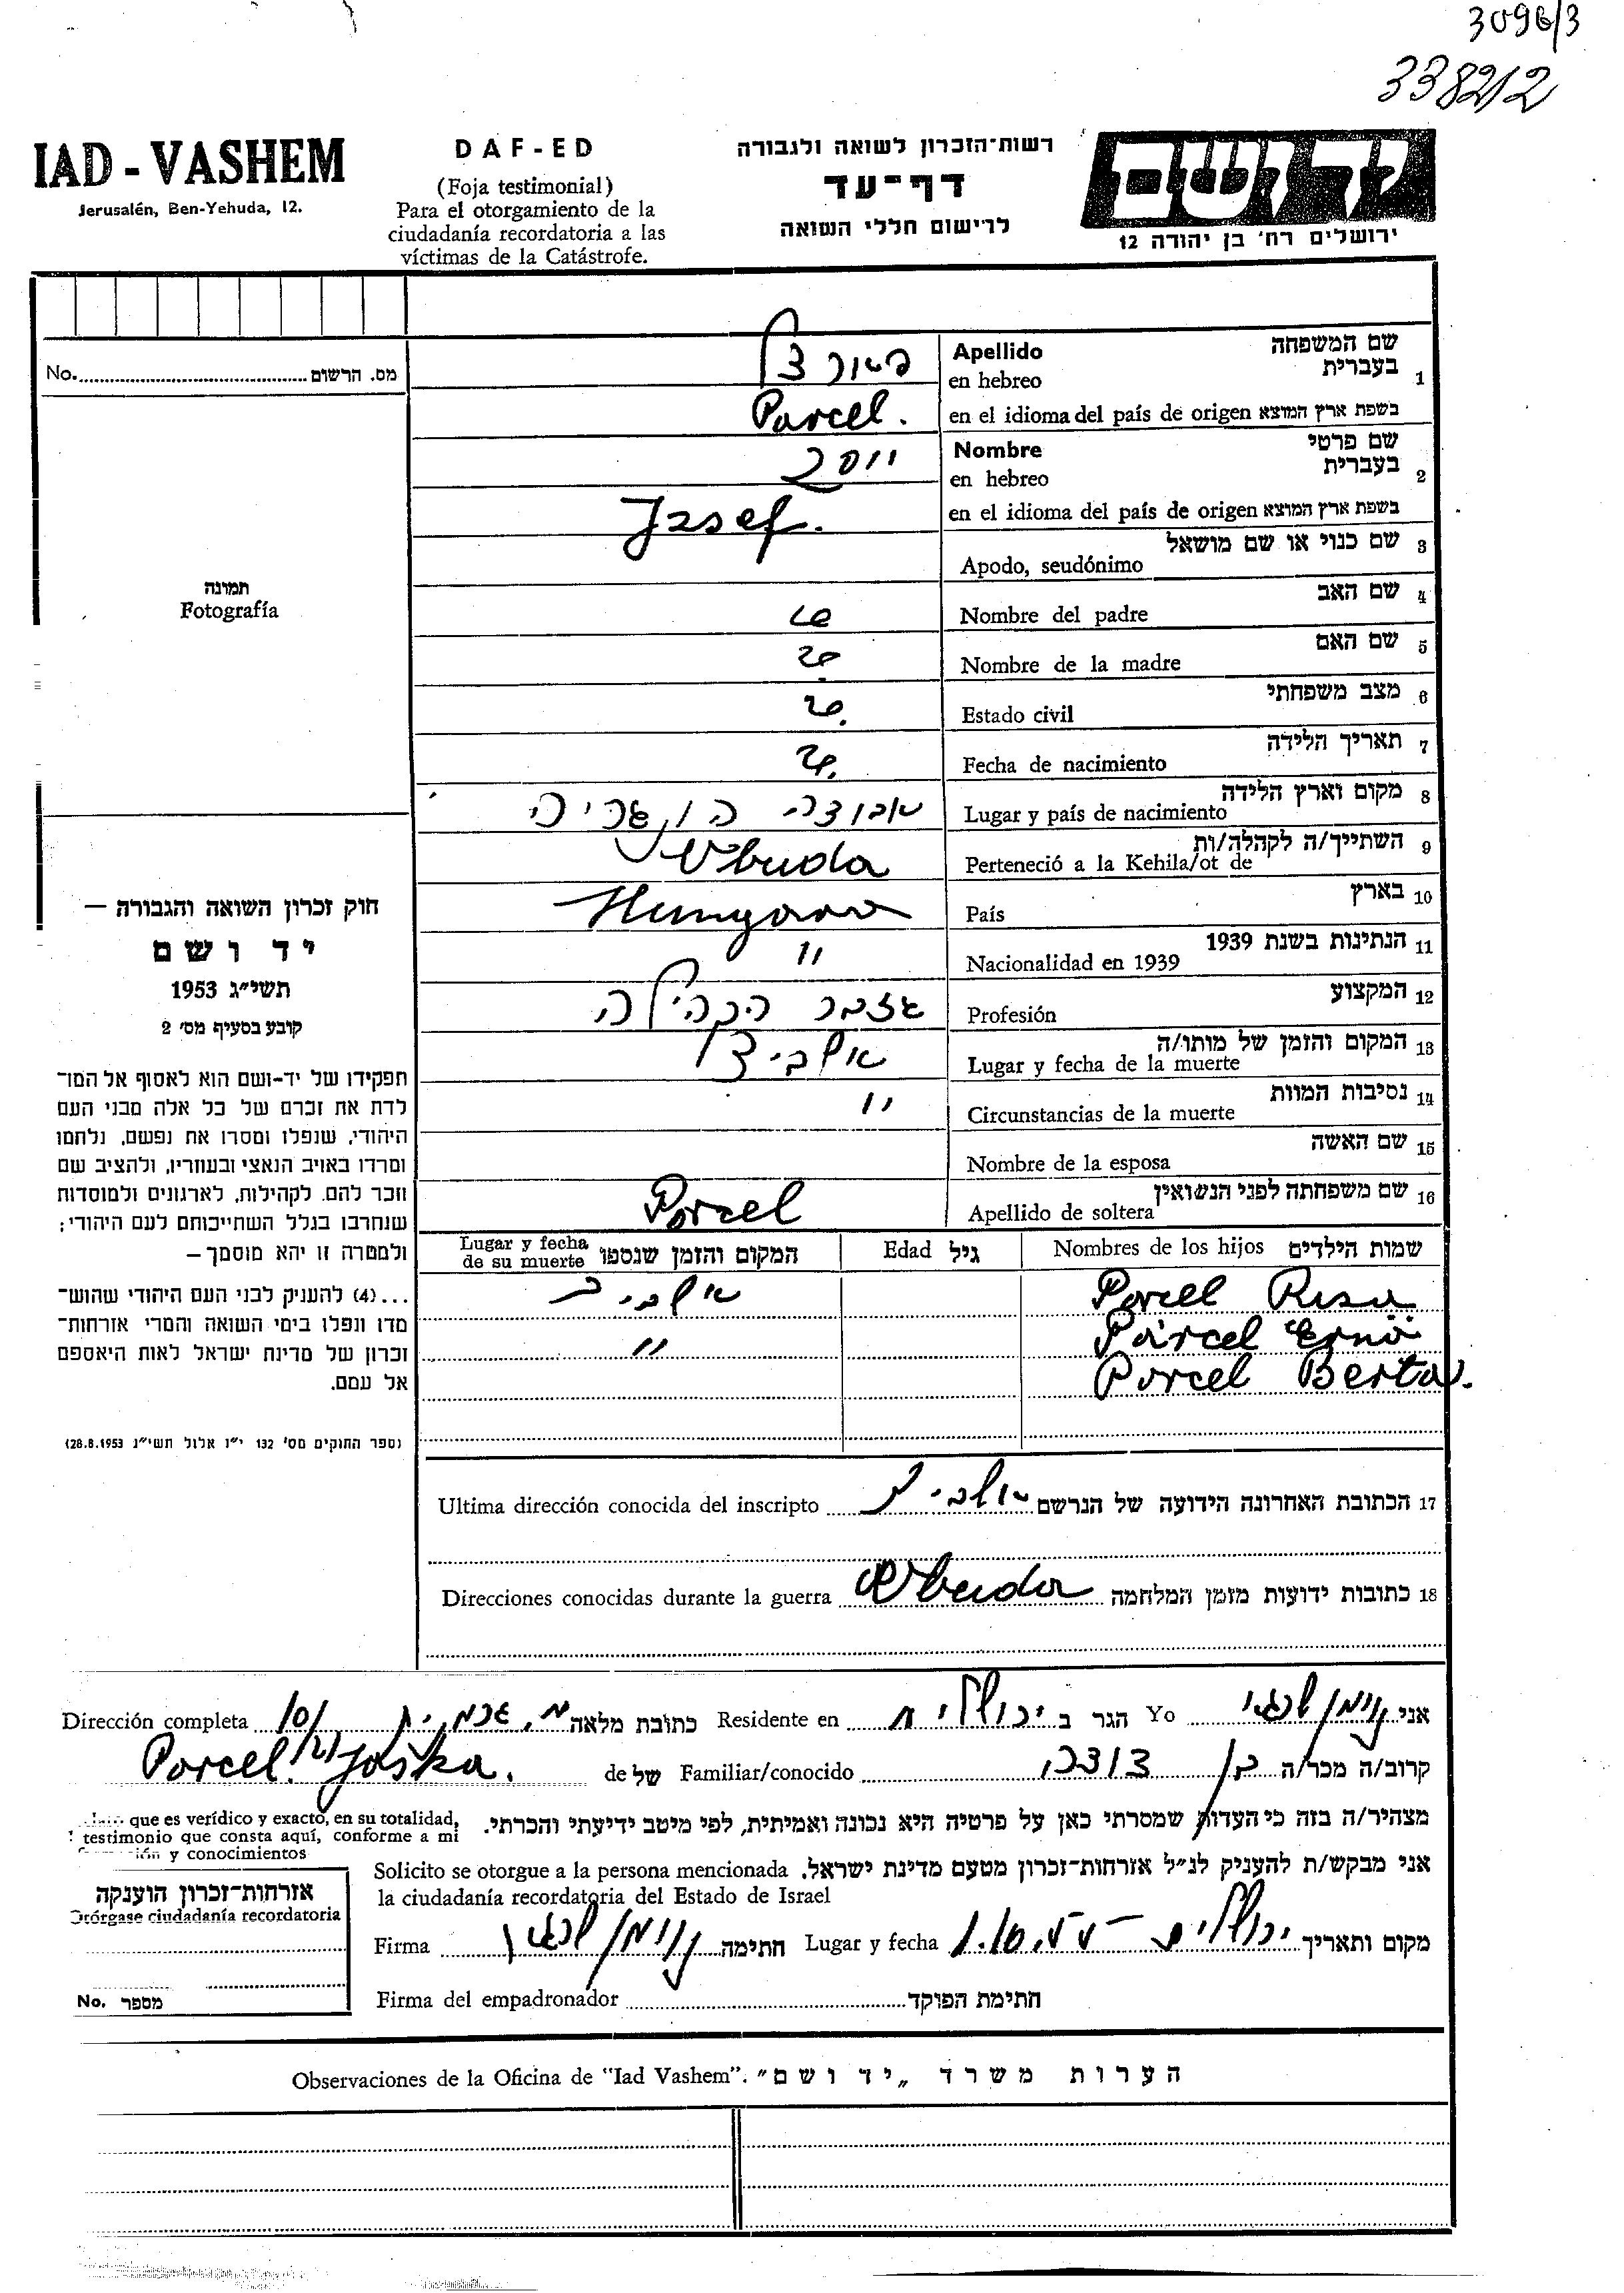 3096/3
338212
IAD - VASHEM
Jerusalén, Ben-Yehuda, 12.
DAF-ED
(Foja testimonial)
Para el otorgamiento de la
ciudadanía recordatoria a las
víctimas de la Catástrofe.
רשות-הזכרון לשואה ולגבורה
דף-עד
לרישום חללי השואה
יד ושם
ירושלים רח' בן יהודה 12
No. מס. הרשום
תמונה
Fotografía
שם המשפחה
Apellido
בעברית 1
en hebreo
en el idioma del país de origen בשפת ארץ המוצא
Parcel.
שם פרטי
Nombre
בעברית 2
en hebreo
יוסף
en el idioma del país de origen בשפת ארץ המוצא
Jzsef.
3 שם כנוי או שם מושאל
Apodo, seudónimo
4 שם האב
Nombre del padre
5 שם האם
Nombre de la madre
6 מצב משפחתי
Estado civil
7 תאריך הלידה
Fecha de nacimiento
8 מקום וארץ הלידה
Lugar y país de nacimiento
אבודה הונגריה
9 השתייך/ה לקהלה/ות
Perteneció a la Kehila/ot de
Obuda
10 בארץ
País
11 הנתינות בשנת 1939
Nacionalidad en 1939
"
12 המקצוע
Profesión
גזבר הקהילה
13 המקום והזמן של מותו/ה
Lugar y fecha de la muerte
14 נסיבות המוות
Circunstancias de la muerte
"
15 שם האשה
Nombre de la esposa
16 שם משפחתה לפני הנשואין
Apellido de soltera
Porcel
שמות הילדים Nombres de los hijos
גיל Edad
המקום והזמן שנספו Lugar y fecha
de su muerte
Porcel Resu
Parcel Ernö
Porcel Berta.
"
17 הכתובת האחרונה הידועה של הנרשם Ultima dirección conocida del inscripto
18 כתובות ידועות מזמן המלחמה Direcciones conocidas durante la guerra
Obuda
חוק זכרון השואה והגבורה —
יד ושם
תשי"ג 1953
קובע בסעיף מס' 2
תפקידו של יד-ושם הוא לאסוף אל המו־
לדת את זכרם של כל אלה מבני העם
היהודי, שנפלו ומסרו את נפשם, נלחמו
ומרדו באויב הנאצי ובעוזריו, ולהציב שם
וזכר להם, לקהילות, לארגונים ולמוסדות
שנחרבו בגלל השתייכותם לעם היהודי;
ולמטרה זו יהא מוסמך —
...(4) להעניק לבני העם היהודי שהוש־
מדו ונפלו בימי השואה והמרי אזרחות־
זכרון של מדינת ישראל לאות היאספם
אל עמם.
(ספר החוקים מס' 132 י"ז אלול תשי"ג 28.8.1953)
אני Yo הגר ב ירושלים Residente en כתובת מלאה Dirección completa
קרוב/ה מכר/ה בן Familiar/conocido של de Porcel Jaśka.
מצהיר/ה בזה כי העדות שמסרתי כאן על פרטיה היא נכונה ואמיתית, לפי מיטב ידיעתי והכרתי.
que es verídico y exacto, en su totalidad,
testimonio que consta aquí, conforme a mi
y conocimientos
אני מבקש/ת להעניק לנ"ל אזרחות-זכרון מטעם מדינת ישראל. Solicito se otorgue a la persona mencionada
la ciudadanía recordatoria del Estado de Israel
מקום ותאריך ירושלים Lugar y fecha חתימה Firma
חתימת הפוקד Firma del empadronador
אזרחות-זכרון הוענקה
Otórgase ciudadanía recordatoria
No. מספר
הערות משרד „יד ושם" Observaciones de la Oficina de "Iad Vashem".